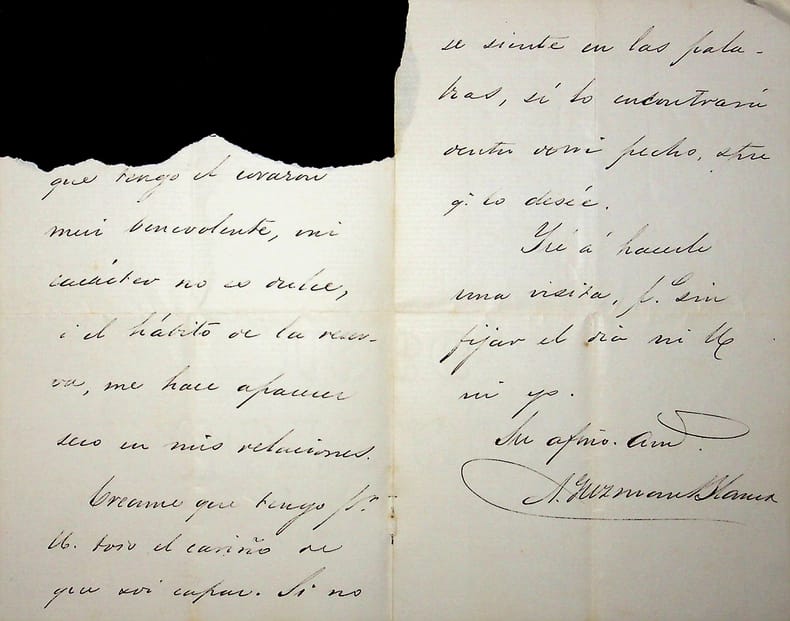 que tengo el corazon
mui benevolente, mi
carácter no es dulce,
i el hábito de la reser-
va, me hace aparecer
seco en mis relaciones.
Creame que tengo pr
U. todo el cariño de
que soi capaz. Si no
se siente en las pala-
bras, sí lo encontrará
dentro de mi pecho, spre
q. lo deseé.
Iré á hacerle
una visita, po sin
fijar el dia ni U.
ni yo.
Su afmo. am.
A. Guzman Blanco